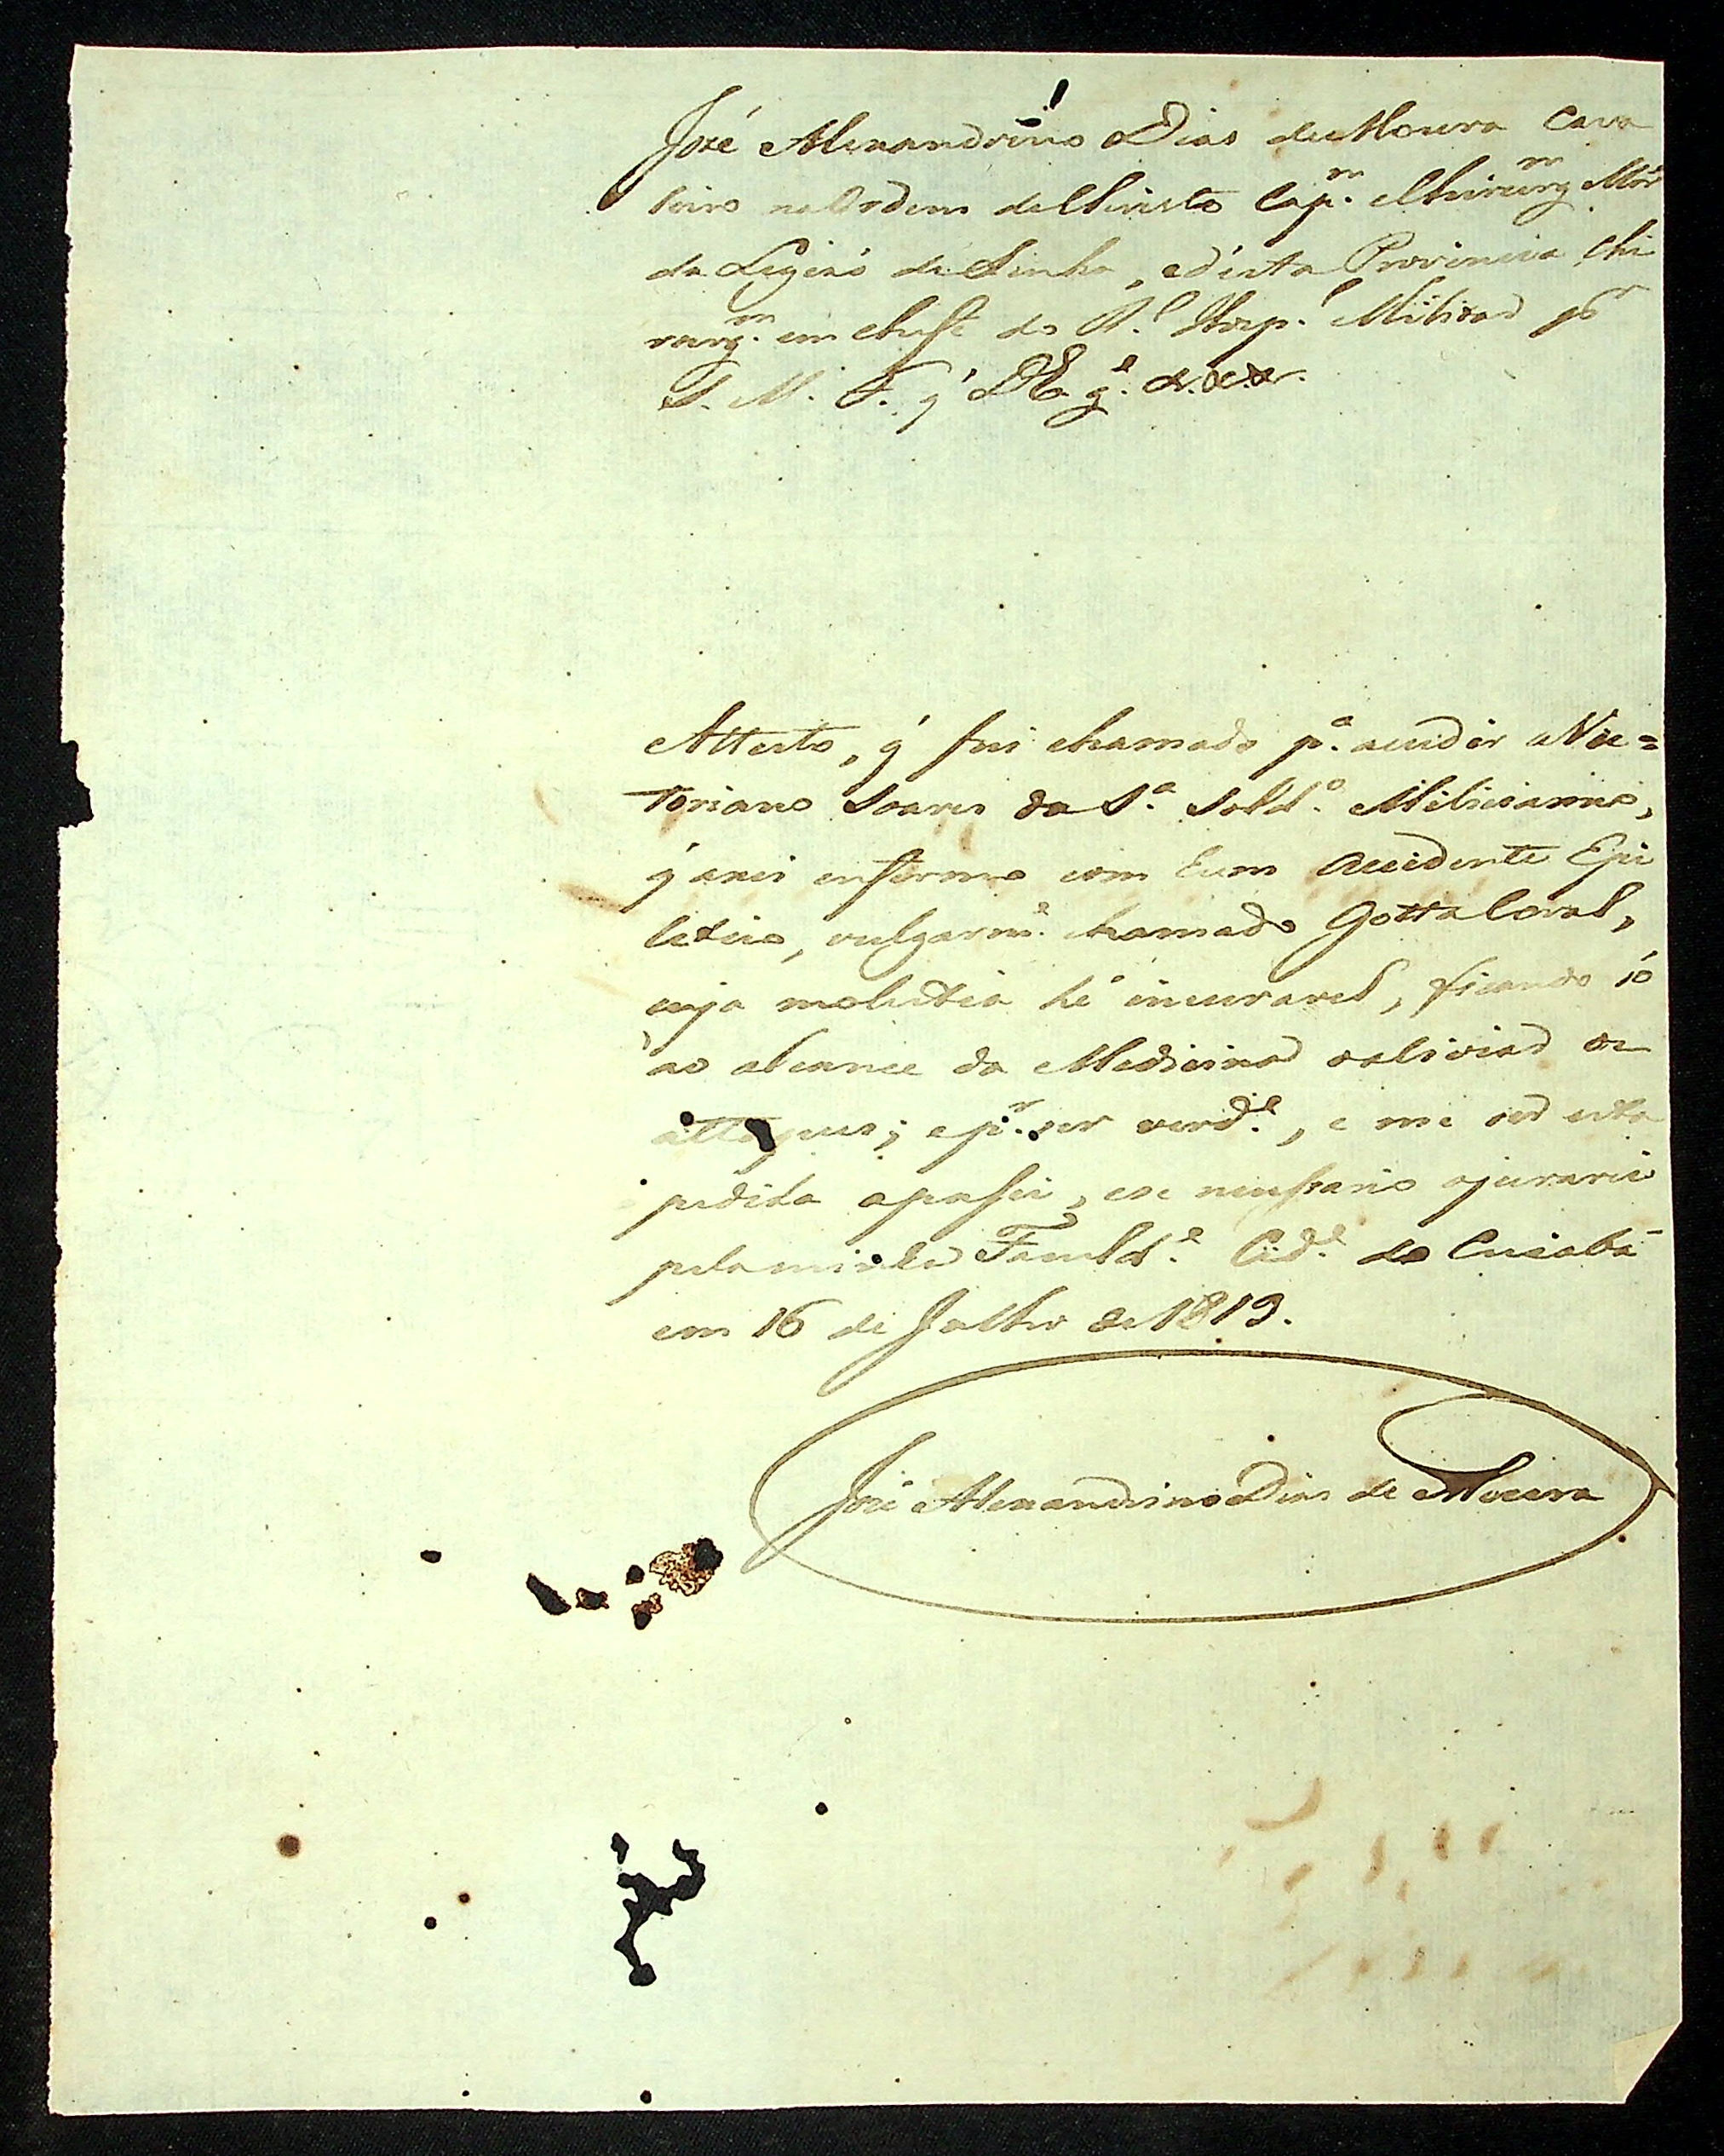 José Alexandrino Dias de Moura Cava
leiro na Ordem de Christo Cap.m e Chirurg.m Mór
da Legiaõ de Linha, e d'esta Provincia Chi
rurg.m em cheffe do R.l Hosp.l Militar p.r
S. M. F. q' D.E g.e &.&.&.
Attesto, q' fui chamado p.a acudir a Vic=
toriano Soares da S.a Sold.o Miliciano,
q' axei enfermo com hum accidente Epi
letico, vulgarm.e chamado Gotta Coral,
cuja molestia hé incuravel, ficando só
ao alcance da Medicina aliviar os
attaques; e p.r ser verd.e, e me ser esta
pedida a passei, e se necessario a jurarei
pela minha Facul.d.e Cid.e do Cuiabá
em 16 de Julho de 1819.
José Alexandrino Dias de Moura